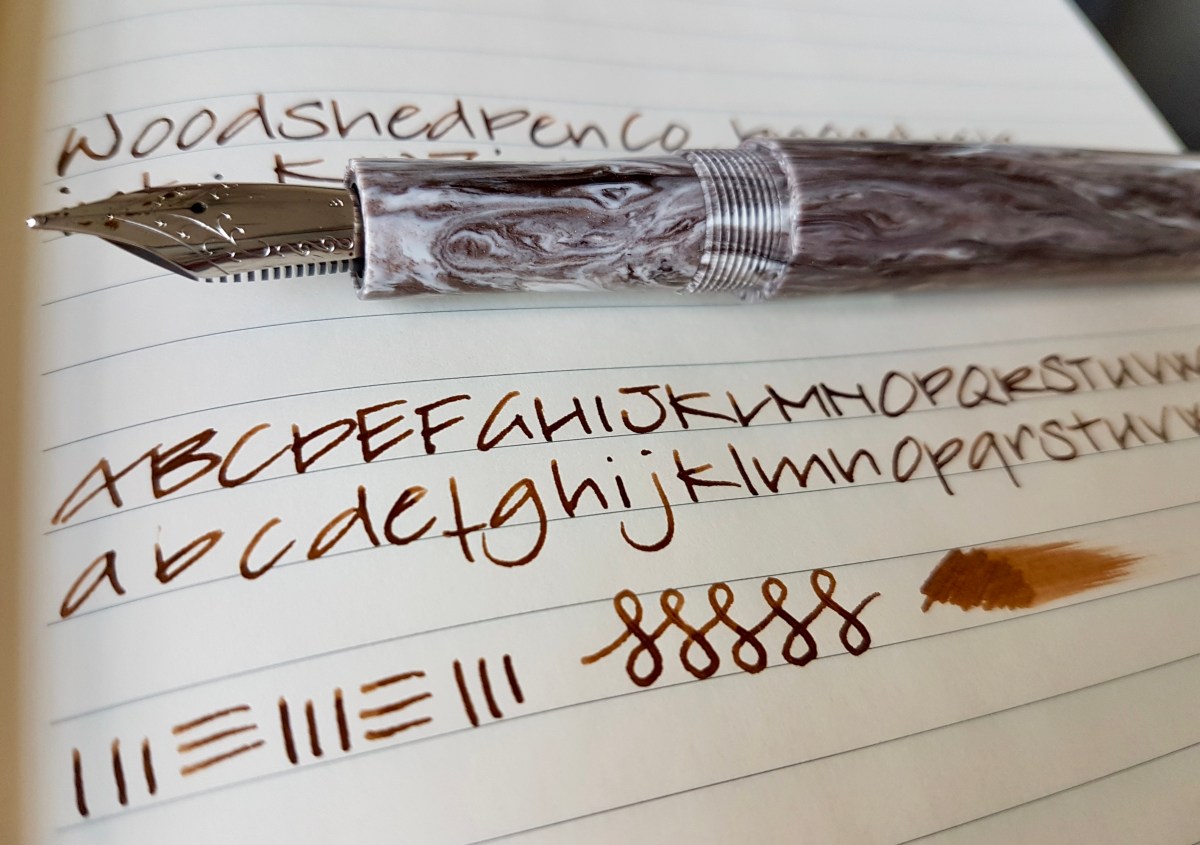 Woodshed Pen Co
ABCDEFGHIJKLMNOPQRSTUVW
abcdefghijklmnopqrstuvw